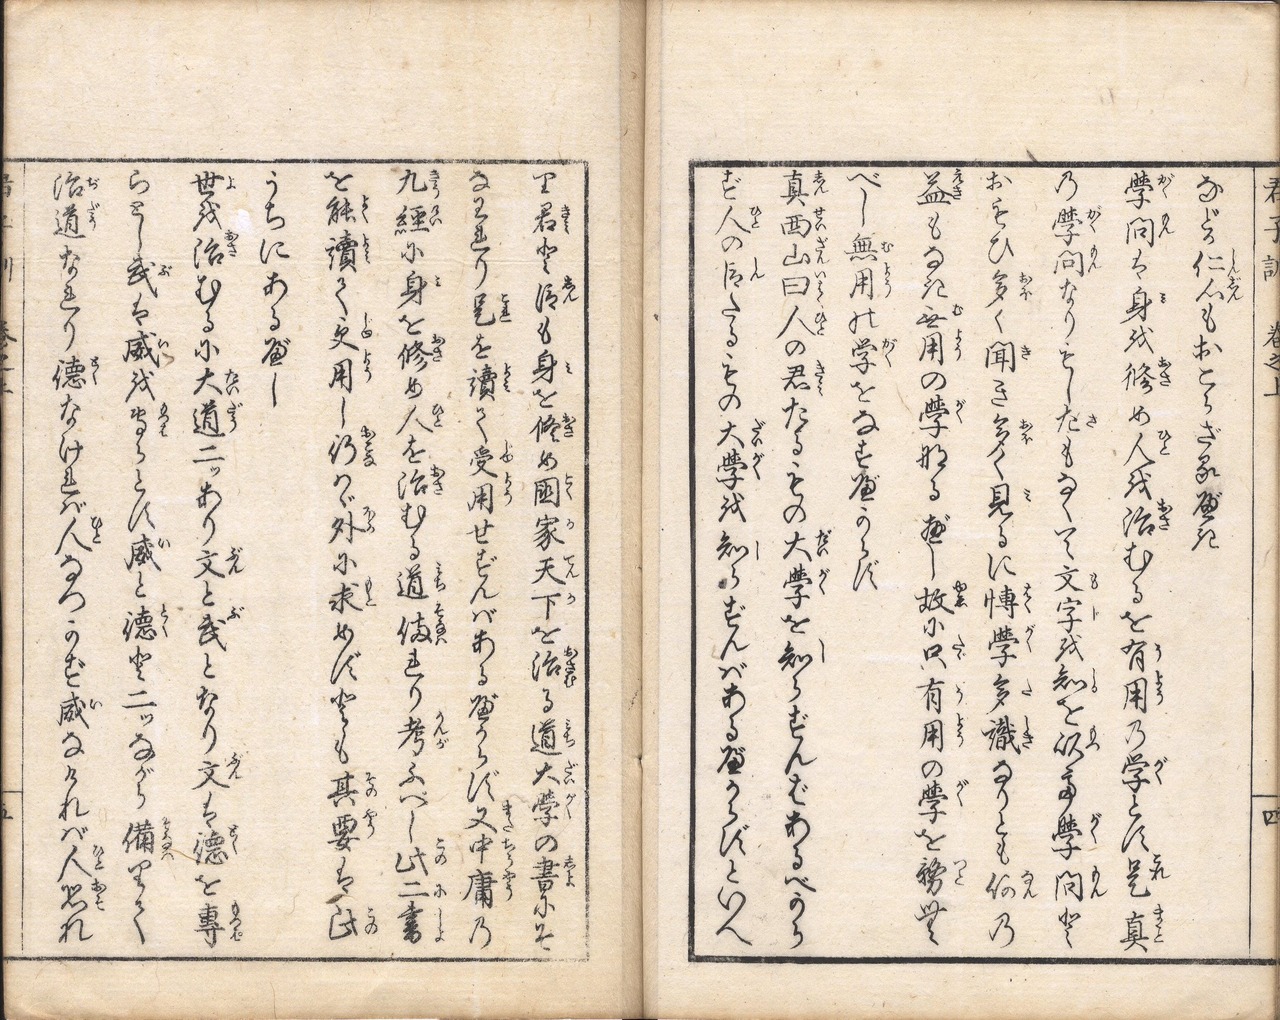 君子訓 巻之上 四
などか仁心もおこらざるべき
學問は身を修め人を治むるを有用乃学とす是真
乃學問なりもしさもなくて文字を知を以て學問と
おもひ多く聞き多く見るに博學多識なりとも何乃
益もなき無用の學なるべし故に只有用の學を務む
べし無用の学をなすべからず
真西山曰人の君たるもの大學を知らずんばあるべから
ず人の臣たるもの大學を知らずんばあるべからずといへ
り君も臣も身を修め國家天下を治る道大學の書に
なれり是を讀て受用せずんばあるべからず又中庸乃
九經に身を修め人を治むる道備れり考ふべし此二書
を能讀て受用し行はゞ外に求めずとも其要は此
うちにあるべし
世を治むるに大道二ツあり文と武となり文は德を專
らとし武は威を専らとす威と德と二ツながら備りて
治道なれり德なけれバ人なつかず威なけれバ人恐れ
五